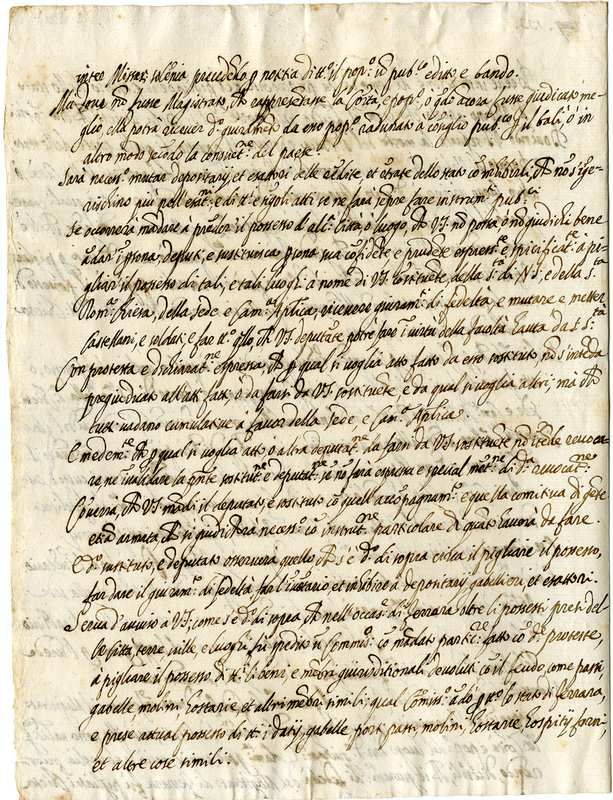 intro Missar: solenia precedendo p nostra di tt.º il pop.º in pub.co editto, e bando.
Ma dove non fusse Magistrato, che rappresentasse la Città, e pop.º, ò q.do ancora fusse giudicato me-
glio ella potrà ricever d.º giuramento da esso pop.º radunato à consiglio pub.co p il bali, ò in
altro modo secondo la consuet.ne del paese.
Sarà necess.º mutar depositarij, et esattori delle entrate dello stato che non s'inge-
rischino più nell'esat.ni, e di tt.e e singoli atti se ne farà sempre fare instrum.ti pub.ci
Se occorrerà mandare à prender il possesso d'alc.ª Città, ò luogo, che VS. non possa ò non giudichi bene
andar in persona, deputi, e sostituisca persona sua confidente e prudente espress.te, e specificat.te à pi-
gliar il possesso di tali, e tali luoghi à nome di VS. sostituente, della S.tà di N.S. e della S.ta
Rom.ª Chiesa, della Sede e Cam.ª Aplica, ricevere giuram.ti di fedeltà e mutare, e metter
Castellani, e soldati e fare tt.º q.llo, che VS. deputante potrè fare in virtù della facoltà hauta da S. S.tà
Con protesta e dichiarat.ne espressa, che p qual si voglia atto fatto da esso sostituto non s'intenda
pregiudicato all'atti fatti ò da farsi da VS. sostituente, e da qual si voglia altri, ma che
tutti vadano cumulative à favor della Sede, e Cam.ª Aplica.
E medem.te che p qual si voglia atto, o altra deputat.ne da farsi da VS. sostituente non intende revoca-
re ne invalidare la pnte sostitut.ne e deputat.ne se non farà espressa e special ment.ne di d.ª revocat.ne
Converrà, che VS. mandi il deputato, e sostituto co quell'accompagnam.to e quella comitiva di gente
etiam armata, che si giudicherà necess.ª co instrut.ne particolare di quanto haverà da fare.
E d.º sostituto, e deputato osserverà quello che s'è d.º di sopra circa il pigliare il possesso,
far dare il giuram.º di fedeltà, far l'inventario, et inhibire à depositarij, gabellieri, et esattori.
Serva d'avviso a VS. come s'è d.º di sopra che nell'occas.ne di Ferrara oltre li possessi presi del
le Città, terre, ville, e luoghi, fù spedito un Commiss.º co mandato partic.re fatto co d.e proteste,
à pigliare il possesso di tt.i li beni, e membri giurisditionali devoluti co il feudo, come passi,
gabelle, molini, hostarie et altri membri simili; qual Comiss.º andò p tt.º lo stato di Ferrara,
e prese attual possesso di tt.i i datij, gabelle, porti, passi, molini, hostarie, hospitij, forni,
et altre cose simili.